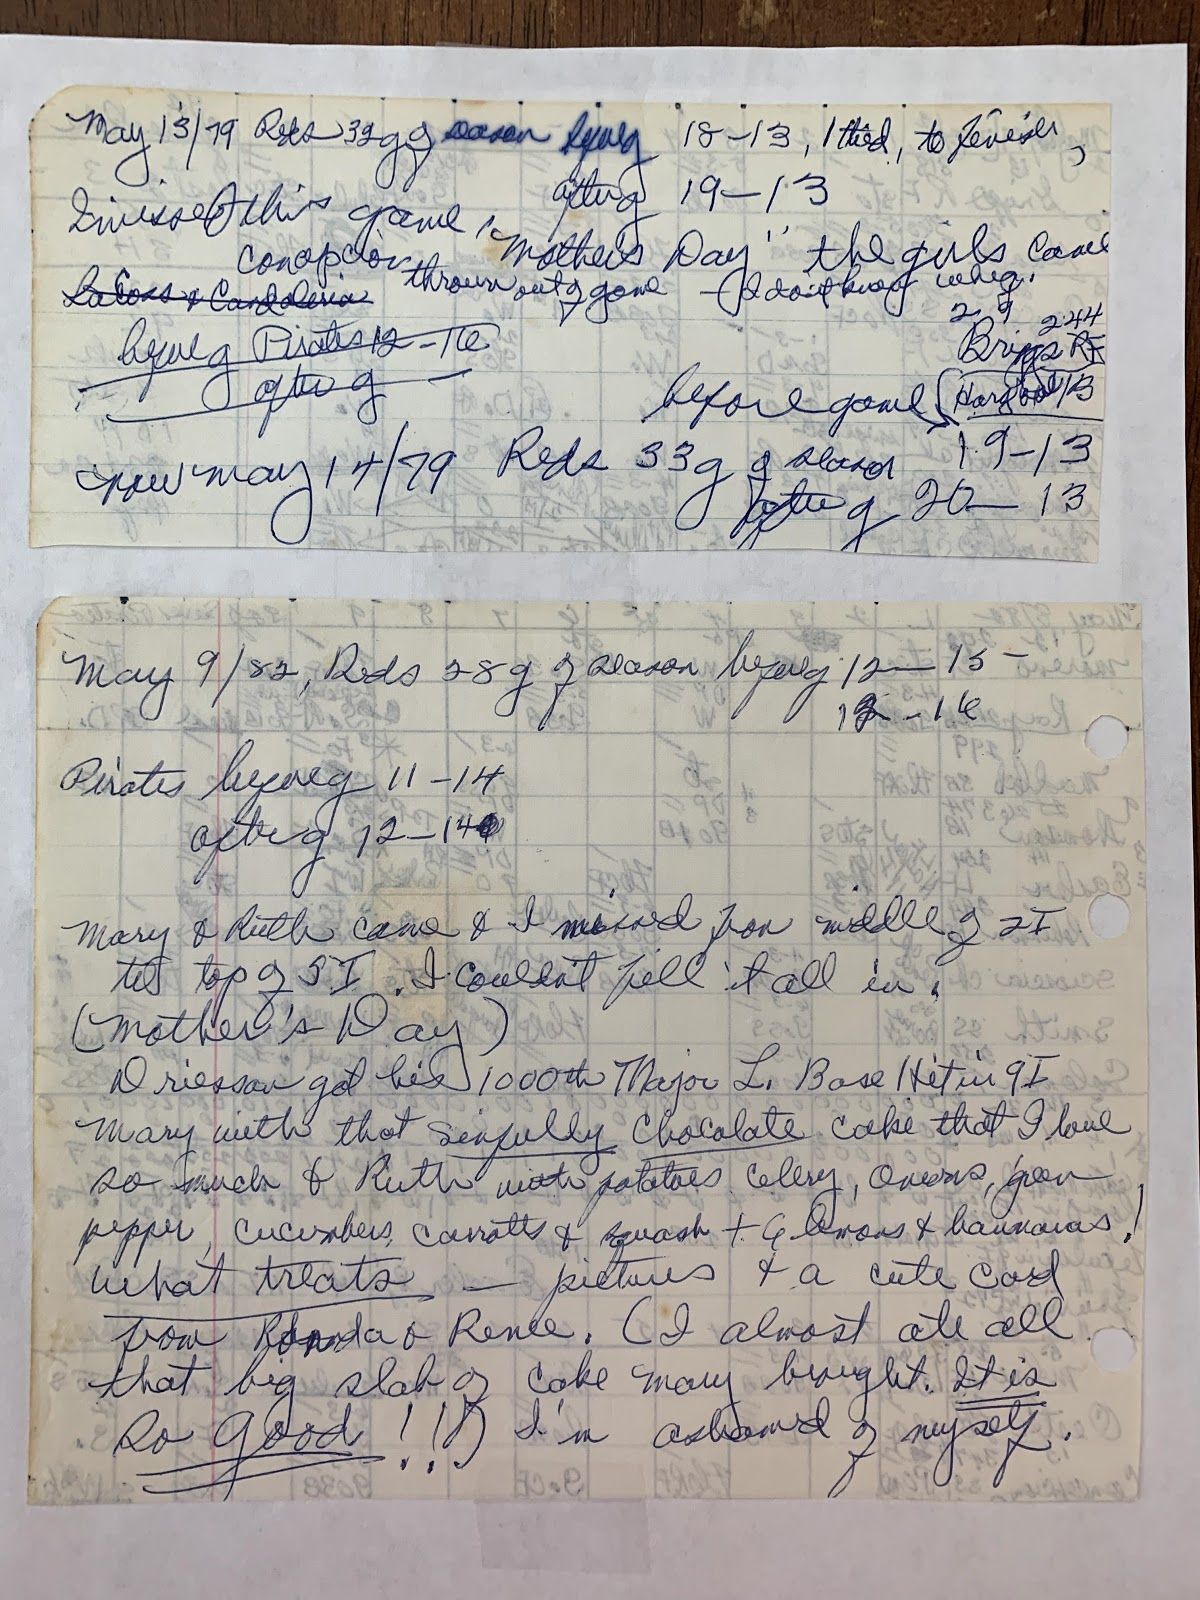 May 13/79 Reds 32g g season before g 18-13, 1 tied, to finish,
after g 19-13
I missed this game, "Mother's Day" the girls came
Concepcion thrown out of game - (I don't know why.
before g Pirates 12-16
after g
2 9 244
RF
before game 13
now May 14/79 Reds 33g g season 19-13
after g 20-13
May 9/82, Reds 28g g season before g 12-15-
12-16
Pirates before g 11-14
after g 12-14
Mary & Ruth came & I missed from middle of 2I
to top of 5I. I couldn't fill it all in.
(Mother's Day)
Driesson got his 1000th Major L. Base Hit in 9I
Mary with that sinfully chocolate cake that I love
so much & Ruth with potatoes celery, onions, green
pepper, cucumbers, carrotts & squash + 6 lemons & bannanas!
What treats - pictures & a cute card
from Rhonda & Renee. (I almost ate all
that big slab of cake Mary brought. It is
So good!!!) I'm ashamed of myself.